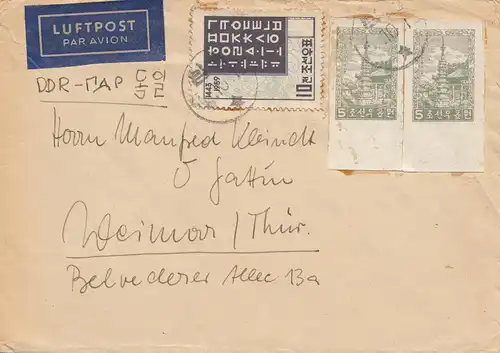 LUFTPOST
PAR AVION
DDR-ПАР
독일
1443
1959
10전 조선우표
5 조선우표 원
5 조선우표 원
Herrn Manfred Kleindt
u Gattin
Weimar/Thür.
Belvederer Allee 13a